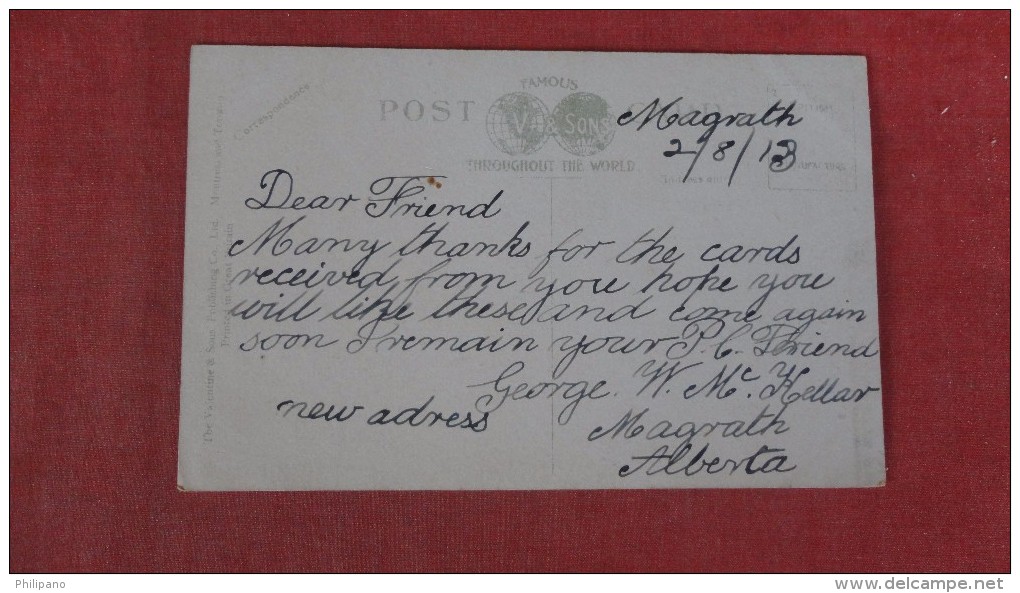 FAMOUS
POST CARD
V & SONS
THROUGHOUT THE WORLD
Correspondence
The Valentine & Sons Publishing Co., Ltd. Montreal and Toronto
Printed in Great Britain
Magrath
2/8/13
Dear Friend
Many thanks for the cards
received from you hope you
will like these and come again
soon I remain your P.C. Friend
George. W. Mc. Kellar
new adress
Magrath
Alberta
Philipano
www.delcampe.net